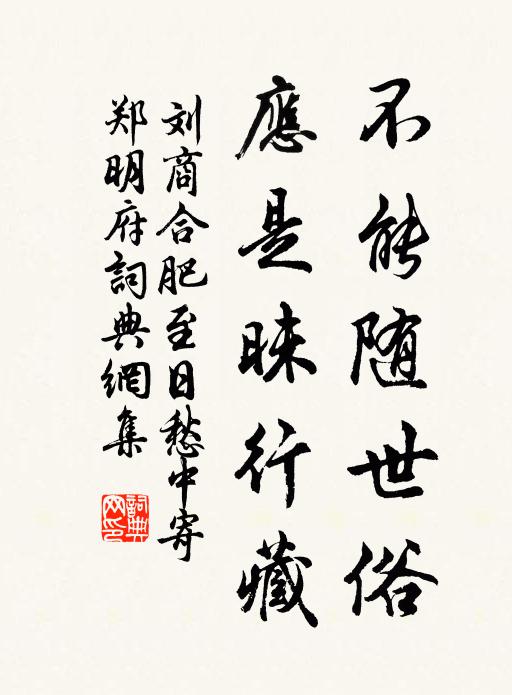 不能随世俗
應是昧行藏
刘商合肥至日愁中寄
郑明府詞典網集
詞典
网印